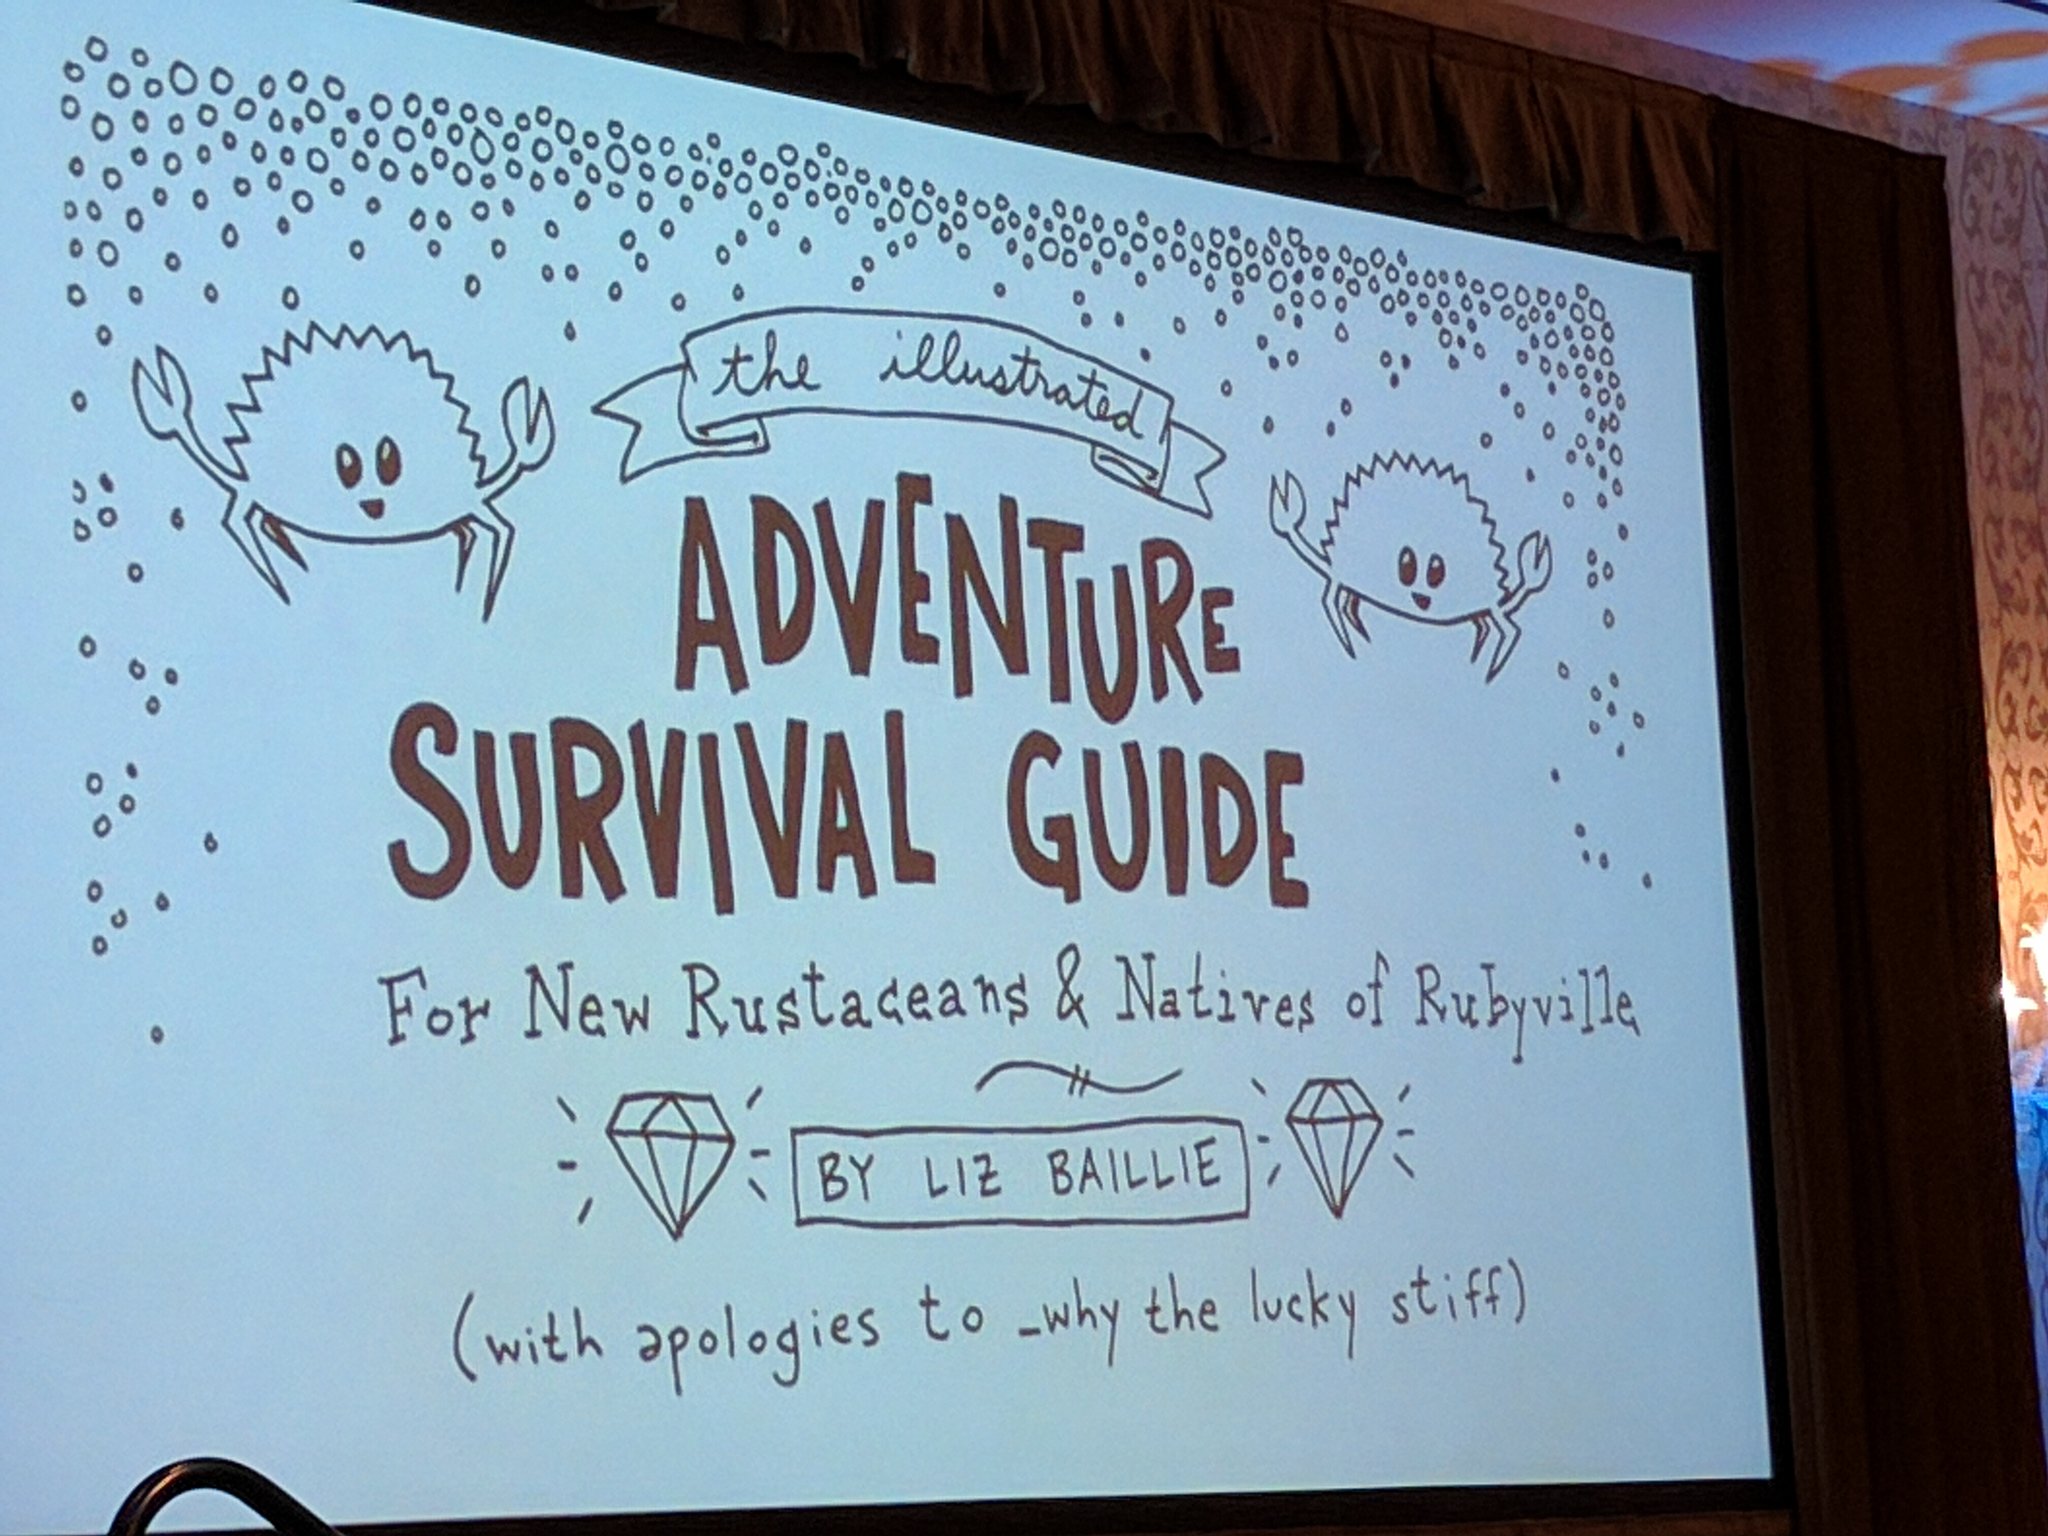 the illustrated
ADVENTURE
SURVIVAL GUIDE
For New Rustaceans & Natives of Rubyville
BY LIZ BAILLIE
(with apologies to _why the lucky stiff)